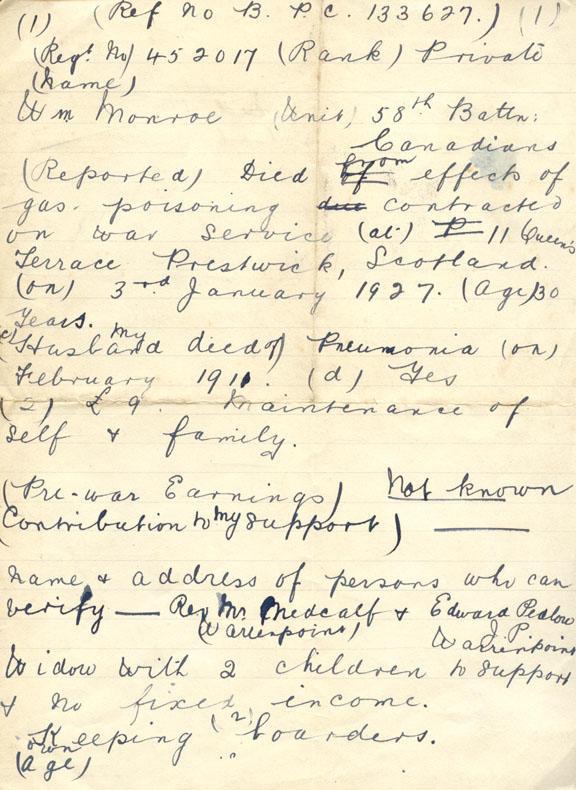 (1) (Ref No B. P. C. 133627.) (1)
(Regt. No) 452017 (Rank) Private
(Name)
Wm Monroe (Unit) 58th Battn:
Canadians
(Reported) Died from effects of
gas poisoning due contracted
on war Service (at) P 11 Queen's
Terrace Prestwick, Scotland.
(on) 3rd January 1927. (Age) 30
Years.
(c) My Husband died of) Pneumonia (on)
February 1911. (d) Yes
(2) £9. Maintenance of
self & family.
(Pre-war Earnings) Not known
(Contribution to my support)
name & address of persons who can
verify — Rev Mr Medcalf & Edward Pedlow
J. P.
(Warrenpoint) Warrenpoint
Widow with 2 children to support
& no fixed income.
Keeping (2) boarders.
own
(Age) "